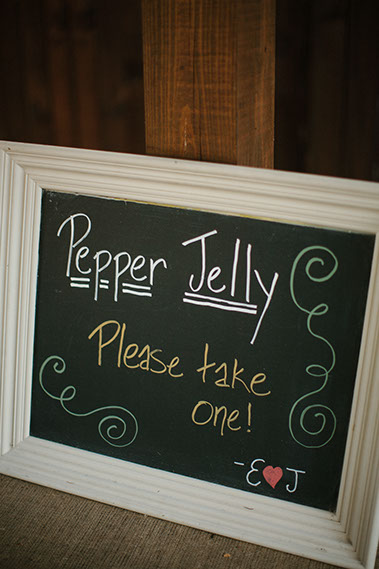 Pepper Jelly
Please take
one!
-E♥J